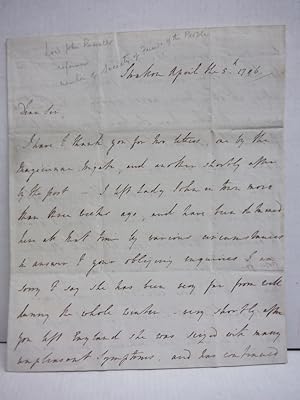 Lord John Russell
reformer
member of Society of Friends of the People
Stratton April the 5th 1796
Dear Sir
I have to thank you for two letters, one by the
and another shortly after
by the post I left Lady John in town more
than three weeks ago, and have been detained
here all that time by various circumstances
in answer to your obliging enquiries I am
sorry to say she has been very far from well
during the whole winter very shortly after
you left England she was seized with many
unpleasant symptoms, and has continued